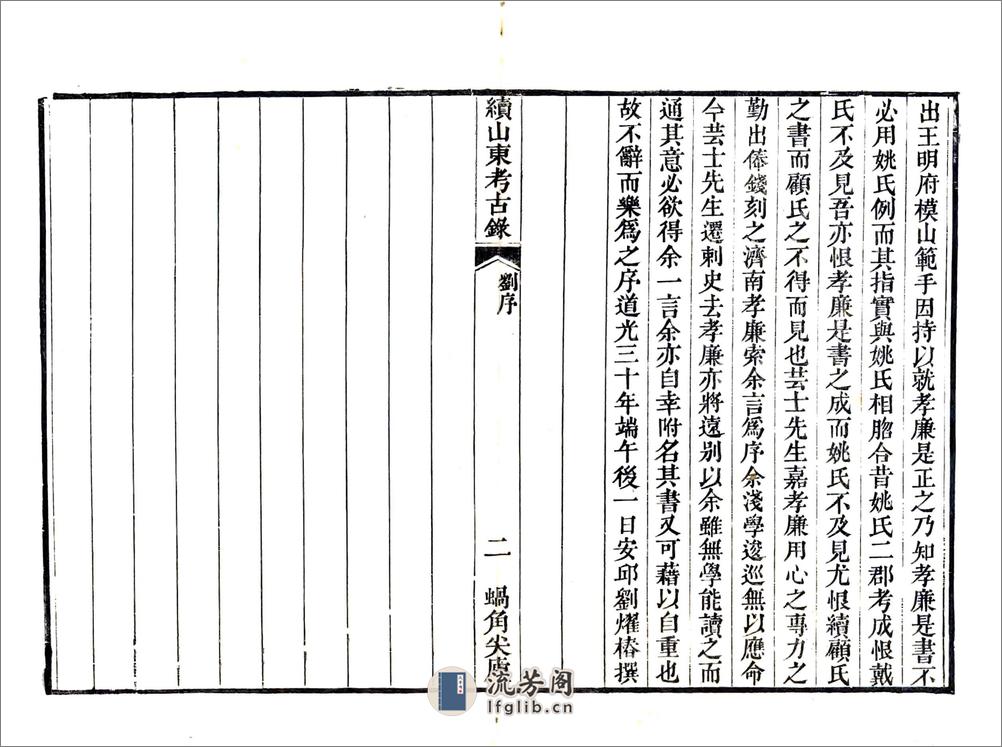 出王明府模山範手因持以就孝廉是正之乃知孝廉是書不
必用姚氏例而其指實與姚氏相脗合昔姚氏二郡考成恨戴
氏不及見吾亦恨孝廉是書之成而姚氏不及見尤恨續顧氏
之書而顧氏之不得而見也芸士先生嘉孝廉用心之專力之
勤出俸錢刻之濟南孝廉索余言爲序余淺學逡巡無以應命
今芸士先生遷刺史去孝廉亦將遠别以余雖無學能讀之而
通其意必欲得余一言余亦自幸附名其書又可藉以自重也
故不辭而樂爲之序道光三十年端午後一日安邱劉燿椿撰
續山東考古錄
劉序
二
蝸角尖廬
流芳阁
lfglib.cn